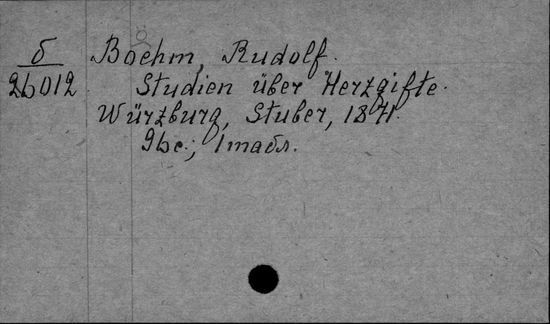 б
26012
Boehm, Rudolf.
Studien über Herzgifte.
Würzburg, Stuber, 1871.
96 с.; 1 табл.